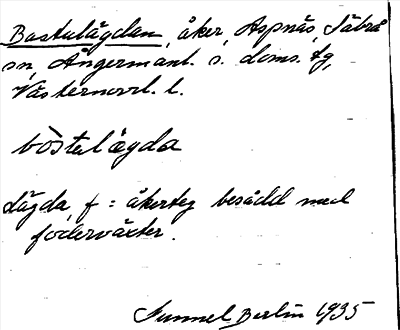 Bastulägdan, åker, Aspnäs, Säbrå
sn, Ångermanl. s. doms. tg,
Västernorrl. l.
bòstulägda
lägda, f = åkerteg besådd med
foderväxter.
Sunnel Berlin 1935